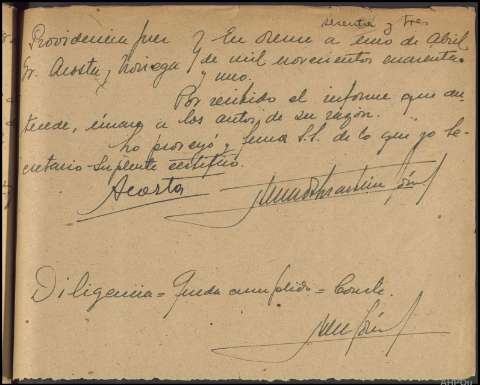 sesenta y tres
Providencia Juez } En Orense a uno de Abril
Sr. Acosta y Noriega } de mil novecientos cuarenta
y uno.
Por recibido el informe que an-
tecede, únase a los autos de su razón.
Lo proveyó y firma S.S. de lo que yo Se-
cretario-Suplente certifico.
Acosta
Diligencia = Queda cumplido = Conste.
AHPOu